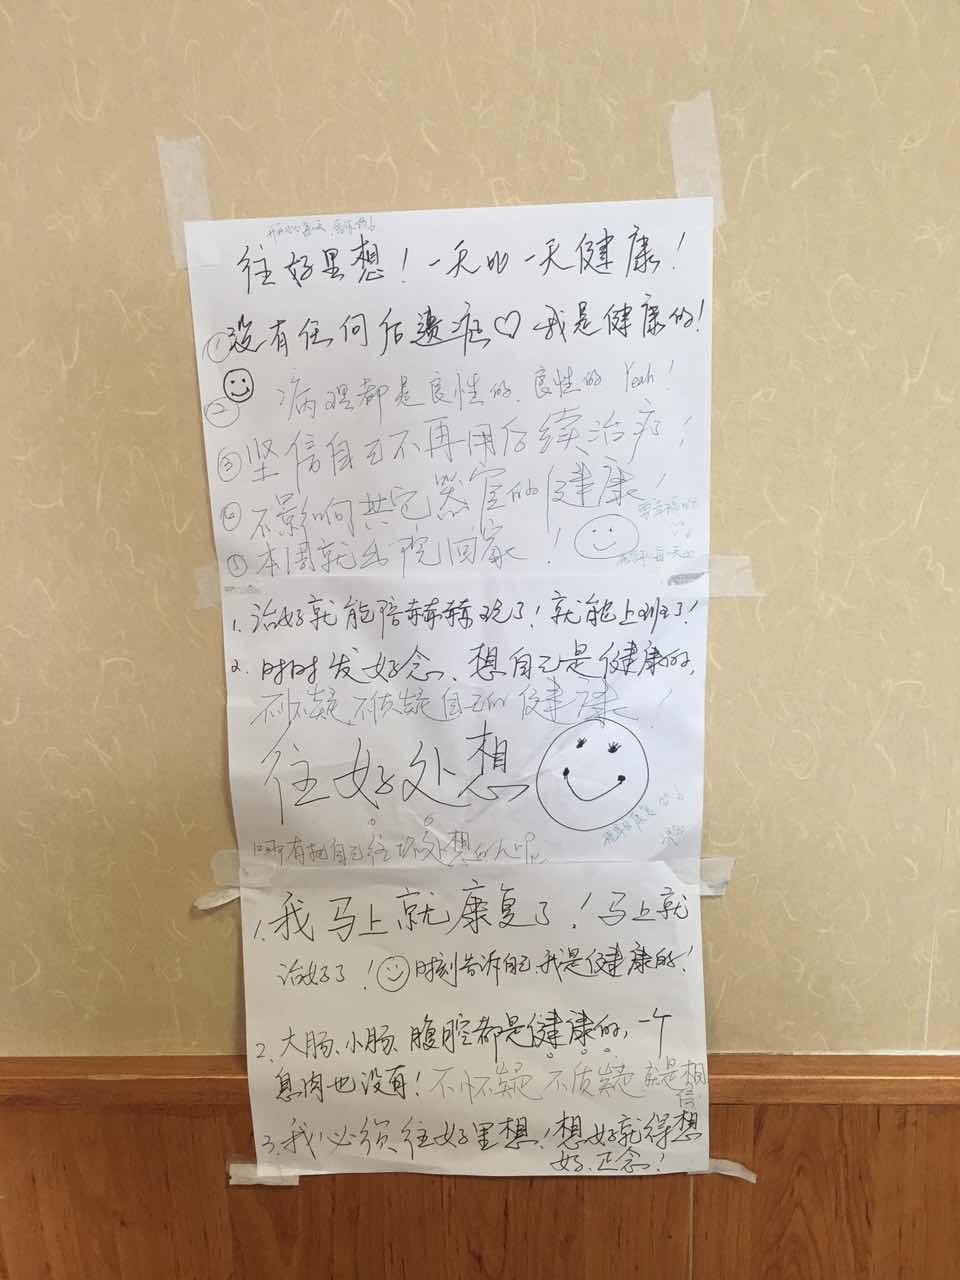 往好里想！一天比一天健康！
①没有任何后遗症♡ 我是健康的！
② 病理都是良性的，良性的 Yeah！
③坚信自己不再用后续治疗！
④不影响其它器官的健康！
⑤本周就出院回家！
1. 治好就能陪赫赫玩了！就能上班了！
2. 时时发好念、想自己是健康的，
不怀疑、不质疑自己的健康！
往好处想
哪有把自己往坏处想的人呢
1. 我马上就康复了！马上就
治好了！时刻告诉自己，我是健康的！
2. 大肠、小肠、腹腔都是健康的，一个
息肉也没有！不怀疑 不质疑 就是相
信
3. 我必须往好里想！想好就得想
好、正念！